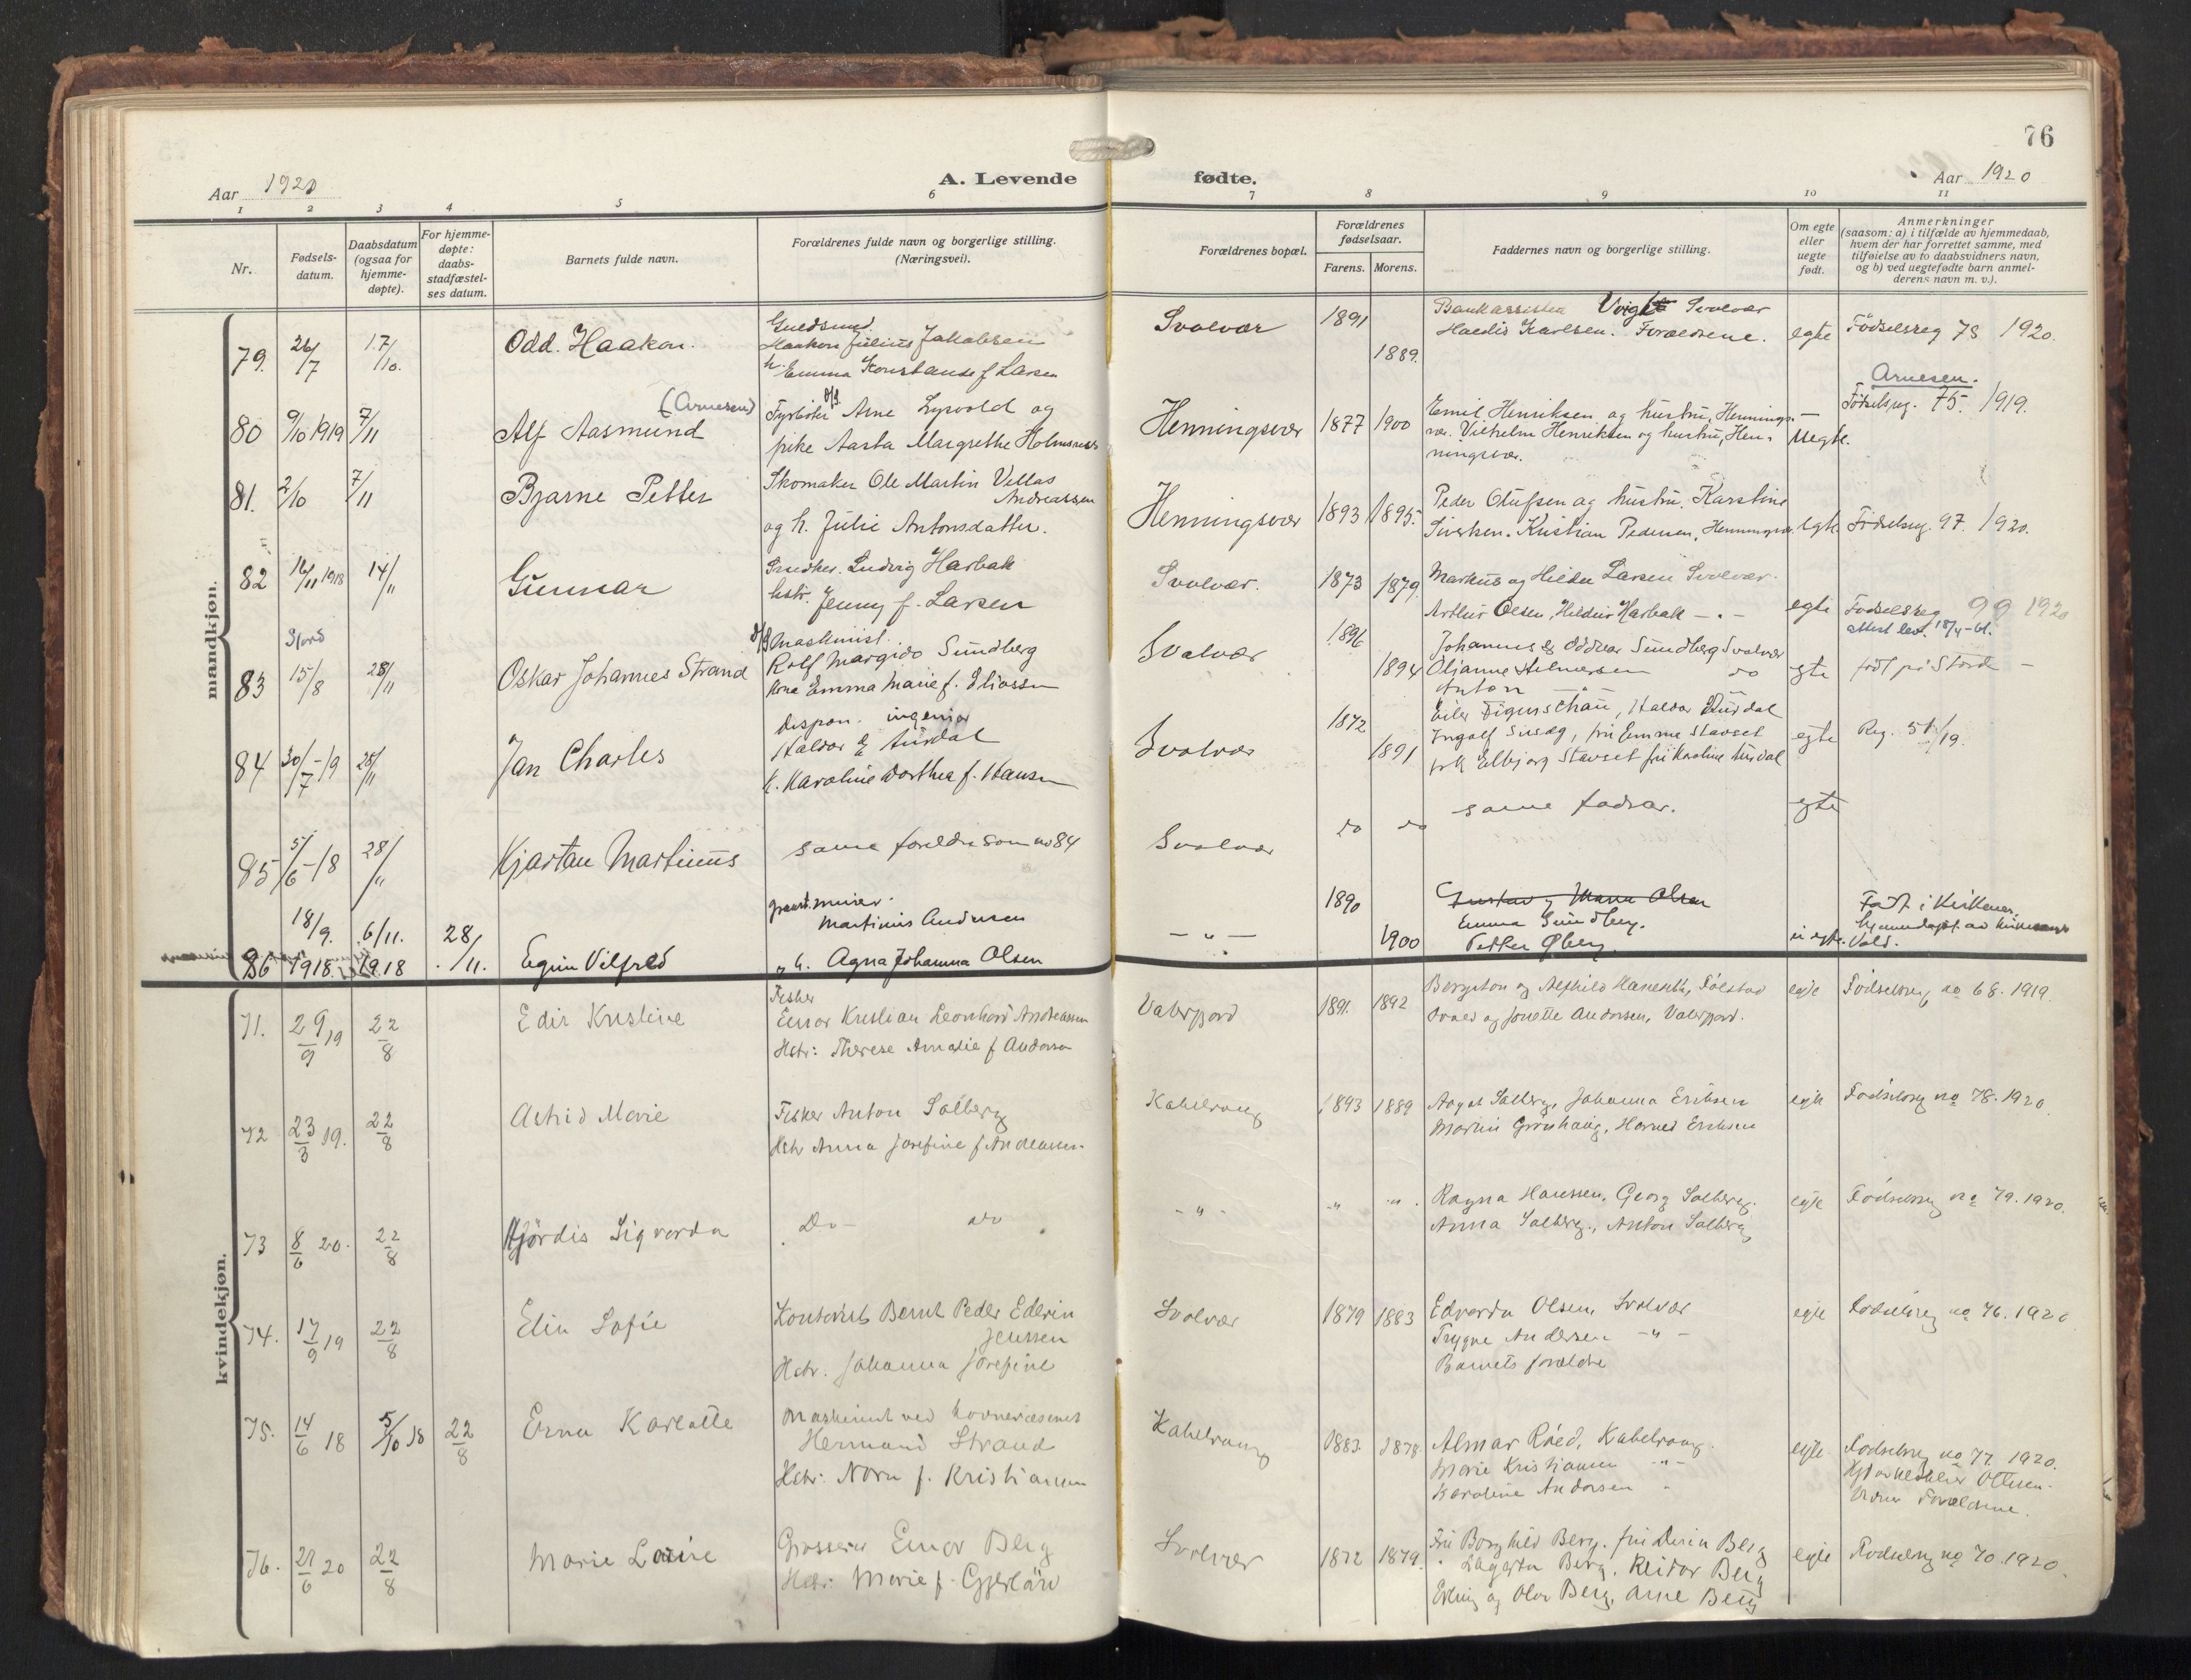 76
Aar 1920
A. Levende fødte.
Aar 1920
1 2 3 4 5 6 7 8 9 10 11
Nr.
Fødsels-
datum.
Daabsdatum
(ogsaa for
hjemme-
døpte).
For hjemme-
døpte:
daabs-
stadfæstel-
ses datum.
Barnets fulde navn.
Forældrenes fulde navn og borgerlige stilling.
(Næringsvei).
Forældrenes bopæl.
Forældrenes
fødselsaar.
Farens. Morens.
Faddernes navn og borgerlige stilling.
Om egte
eller
uegte
født.
Anmerkninger
(saasom: a) i tilfælde av hjemmedaab,
hvem der har forrettet samme, med
tilføielse av to daabsvidners navn,
og b) ved uegtefødte barn anmel-
derens navn m. v.).
mandkjøn.
79. 26/7 17/10. Odd. Haakon.
Guldsmed
Haakon Julius Jakobsen
h. Emma Konstanse f Larsen
Svolvær 1891 1889.
Svolvær
Haldis Karlsen. Forældrene.
egte Födselsreg 78 1920.
80 9/10 1919 7/11 (Arnesen)
Alf Aasmund
Fyrbøter Arne Lysvold og
pike Aasta Margrethe
Henningsvær 1877 1900
Emil Henriksen og hustru, Hennings-
vær. Vilhelm Henriksen og hustru, Hen-
ningsvær.
Uegte.
Arnesen.
Födselsreg. 75. 1919.
81. 2/10 7/11 Bjarne Petter
Skomaker Ole Martin
Andreassen
og h. Julie Antonsdatter.
Henningsvær 1893 1895.
Peder Olufsen og hustru. Karstine
Kristian Pedersen, Henningsvær
egte. Födselsreg. 97. 1920.
82 16/11 1918 14/11 Gunnar
Ludvig Harbak
hstr. Jenny f. Larsen
Svolvær. 1873 1879.
Markus og Hilda Larsen Svolvær.
Arthur Olsen, Hildur Harbak — " —
egte Fodselsreg 99 1920
Attest lev. 18/4-61.
83 Stord 15/8 28/11 Oskar Johannes Strand
D/S Maskinist.
Rolf Margido Sundberg
Kone Emma Marie f. Eliassen
Svolvær 1896 1894
Johannes & Oddvar Sundberg Svolvær
Oljanne Hilmersen do
Anton — " —
egte født på Stord —
84 30/7-19 28/11 Jan Charles
dispon. ingeniør
Haldor E Aurdal
h. Karoline Dorthea f. Hansen
Svolvær 1872 1891
Haldor Aurdal
Ingolf fru Emma Stavset
frk Elbjorg Stavset fru Karoline Aurdal
egte Reg. 51/19.
85 5/6-18 28/11 Kjartan Martinus
same foreldre som no 84
Svolvær do do same fadrar. egte
86 18/9. 1918. 6/11. 1918 28/11. Egin Vilfred
murer.
Martinus Andersen
" h. Agna Johanna Olsen
— " — 1890 1900
Gustav og Marie Olsen
Emma Sundberg.
Petter Øberg.
Født i Kirkenes.
hjemmedøpt av
Vold.
kvindekjøn.
71. 29/9 19 22/8 Edit Kristine
Fisker
Einar Kristian Leonhard Andreassen
Hstr: Therese Amalie f Andersen
Valerfjord 1891. 1892
Jonette Andersen, Valerfjord.
egte Födselsreg no 68. 1919.
72 23/3 19. 22/8 Astrid Marie
Fisker Anton Solberg
Hstr Anna Josefine f Andreassen.
Kabelvaag 1893 1889
Aagot Solberg, Johanna Eriksen
Martin Grønhaug, Harald Eriksen
egte Födselsreg no 78. 1920.
73 8/6 20. 22/8 Hjördis Sigvarda
Do — do
- " - " "
Ragna Hanssen, Georg Solberg.
Anna Solberg., Anton Solberg
egte Födselsreg no 79. 1920.
74. 17/9 19 22/8 Elin Sofie
Kontorist Bernt Peder Edvin
Jenssen
Hstr. Johanna Josefine
Svolvær 1879 1883
Edvarda Olsen, Svolvær
Trygve Andersen — " —
Barnets forældre
egte Fødselsreg no 76. 1920
75. 14/6 18 5/10 18 22/8 Erna Karlotte
Maskinist ved havnevæsenet
Hermand Strand
Hstr: Nora f. Kristiansen
Kabelvaag 1883. 1878.
Almar Röed, Kabelvaag.
Marie Kristiansen - " -
Karoline Andersen "
egte Fødselsreg no 77. 1920.
Ottesen.
Vidner Forældrene.
76. 21/6 20 22/8 Marie Lovise
Grosserer Einar Berg
Hstr: Marie f.
Svolvær 1872 1879.
Fru Borghild Berg. fru Berg
" Dagfrin Berg, Reidar Berg
Erling og Olav Berg, Arne Berg
egte Fødselsreg no 70. 1920.